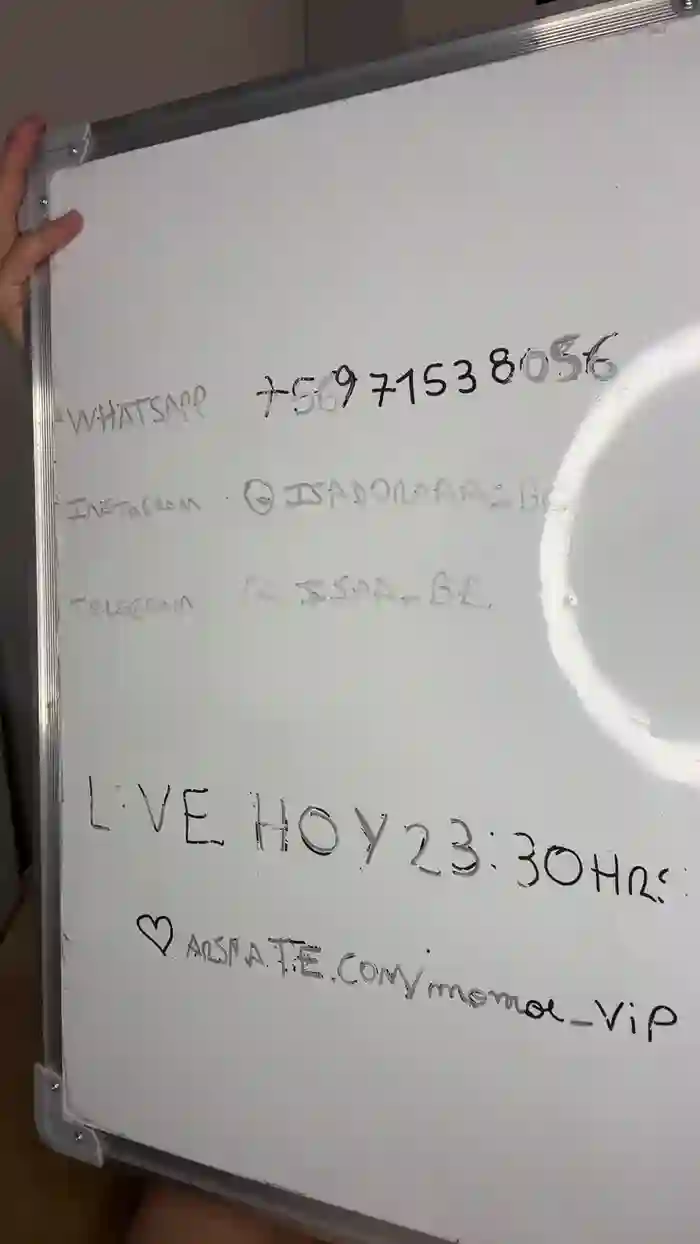 WHATSAPP +56971538056
INSTAGRAM
TELEGRAM
LIVE HOY 23:30HRS
♡ ARSMATE.COM/momoe_ViP